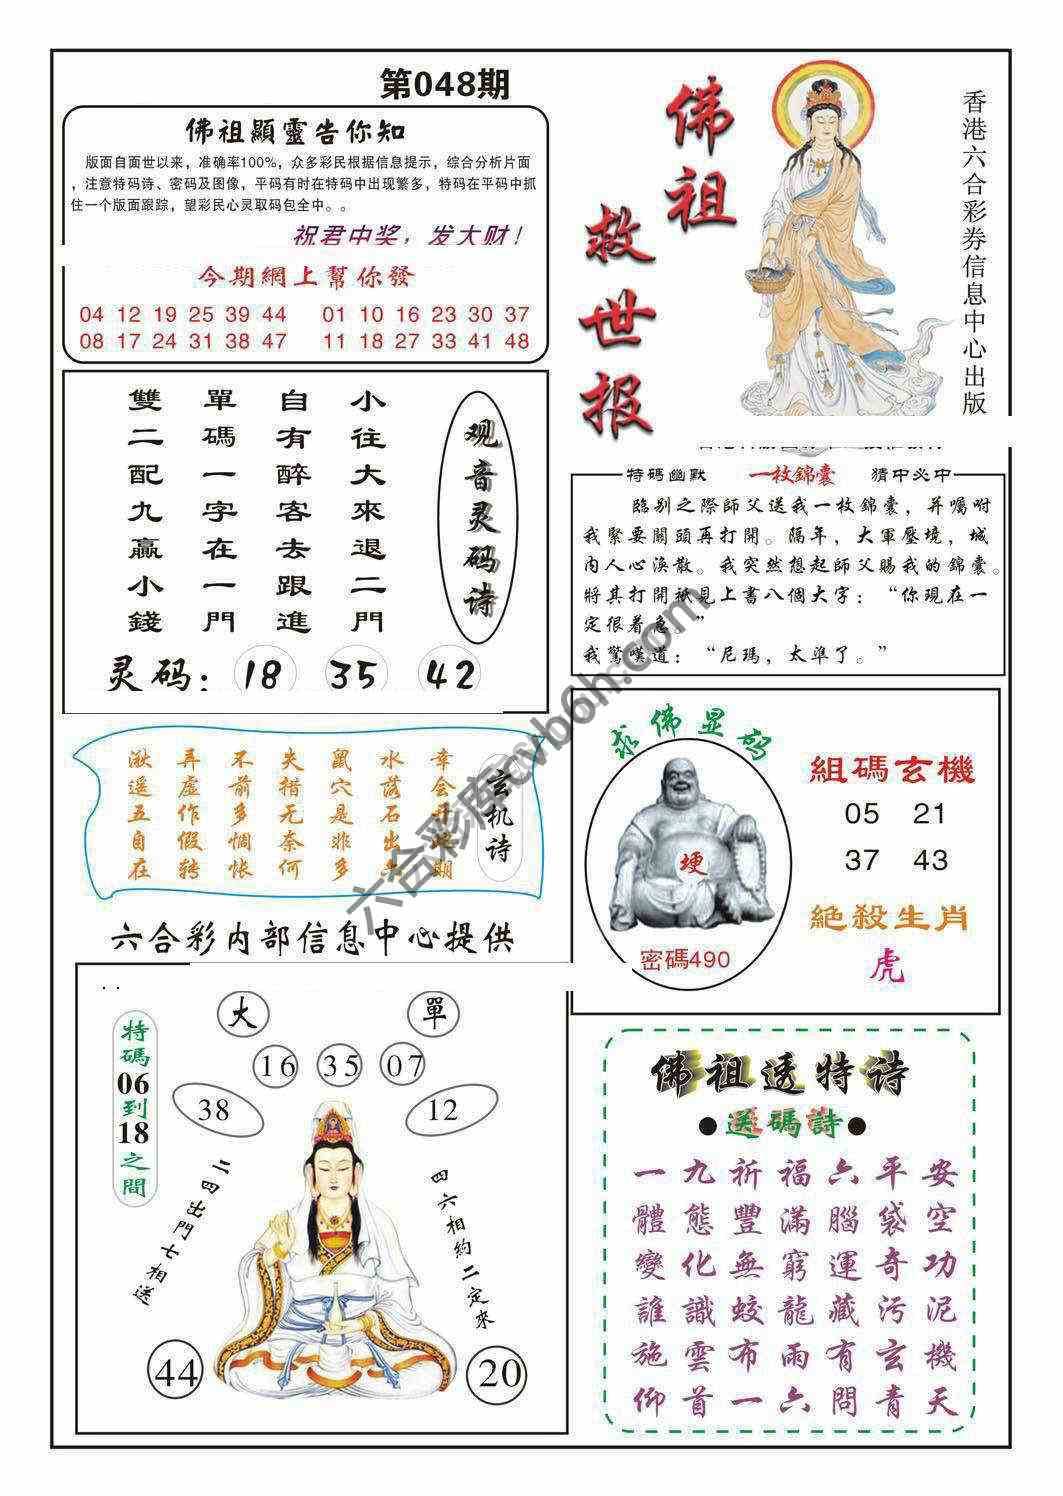 第048期
佛祖顯靈告你知
版面自面世以来，准确率100%，众多彩民根据信息提示，综合分析片面
，注意特码诗、密码及图像，平码有时在特码中出现繁多，特码在平码中抓
住一个版面跟踪，望彩民心灵取码包全中。。
祝君中奖，发大财！
今期網上幫你發
04 12 19 25 39 44 01 10 16 23 30 37
08 17 24 31 38 47 11 18 27 33 41 48
佛祖
救世报
香港六合彩券信息中心出版
观音灵码诗
小往大來退二門
自有醉客去跟進
單碼一字在一門
雙二配九贏小錢
灵码：18 35 42
特碼幽默 一枚錦囊 猜中必中
臨别之際師父送我一枚錦囊，并囑咐
我緊要關頭再打開。隔年，大軍壓境，城
内人心渙散。我突然想起師父賜我的錦囊。
將其打開祇見上書八個大字：“你現在一
定很着急。”
我驚嘆道：“尼瑪，太準了。”
玄机诗
水落石出
鼠穴是非多
失措无奈何
不前多惆怅
弄虚作假转
逍遥五自在
六合彩内部信息中心提供
求佛显码
埂
密碼490
組碼玄機
05 21
37 43
絶殺生肖
虎
特碼06到18之間
大 單
16 35 07
38 12
二四出門七相送
四六相約二定來
44 20
佛祖透特诗
●送碼詩●
一九祈福六平安
體態豐滿腦袋空
變化無窮運奇功
誰識蛟龍藏污泥
施雲布雨有玄機
仰首一六問青天
六合彩库cvb6h.com